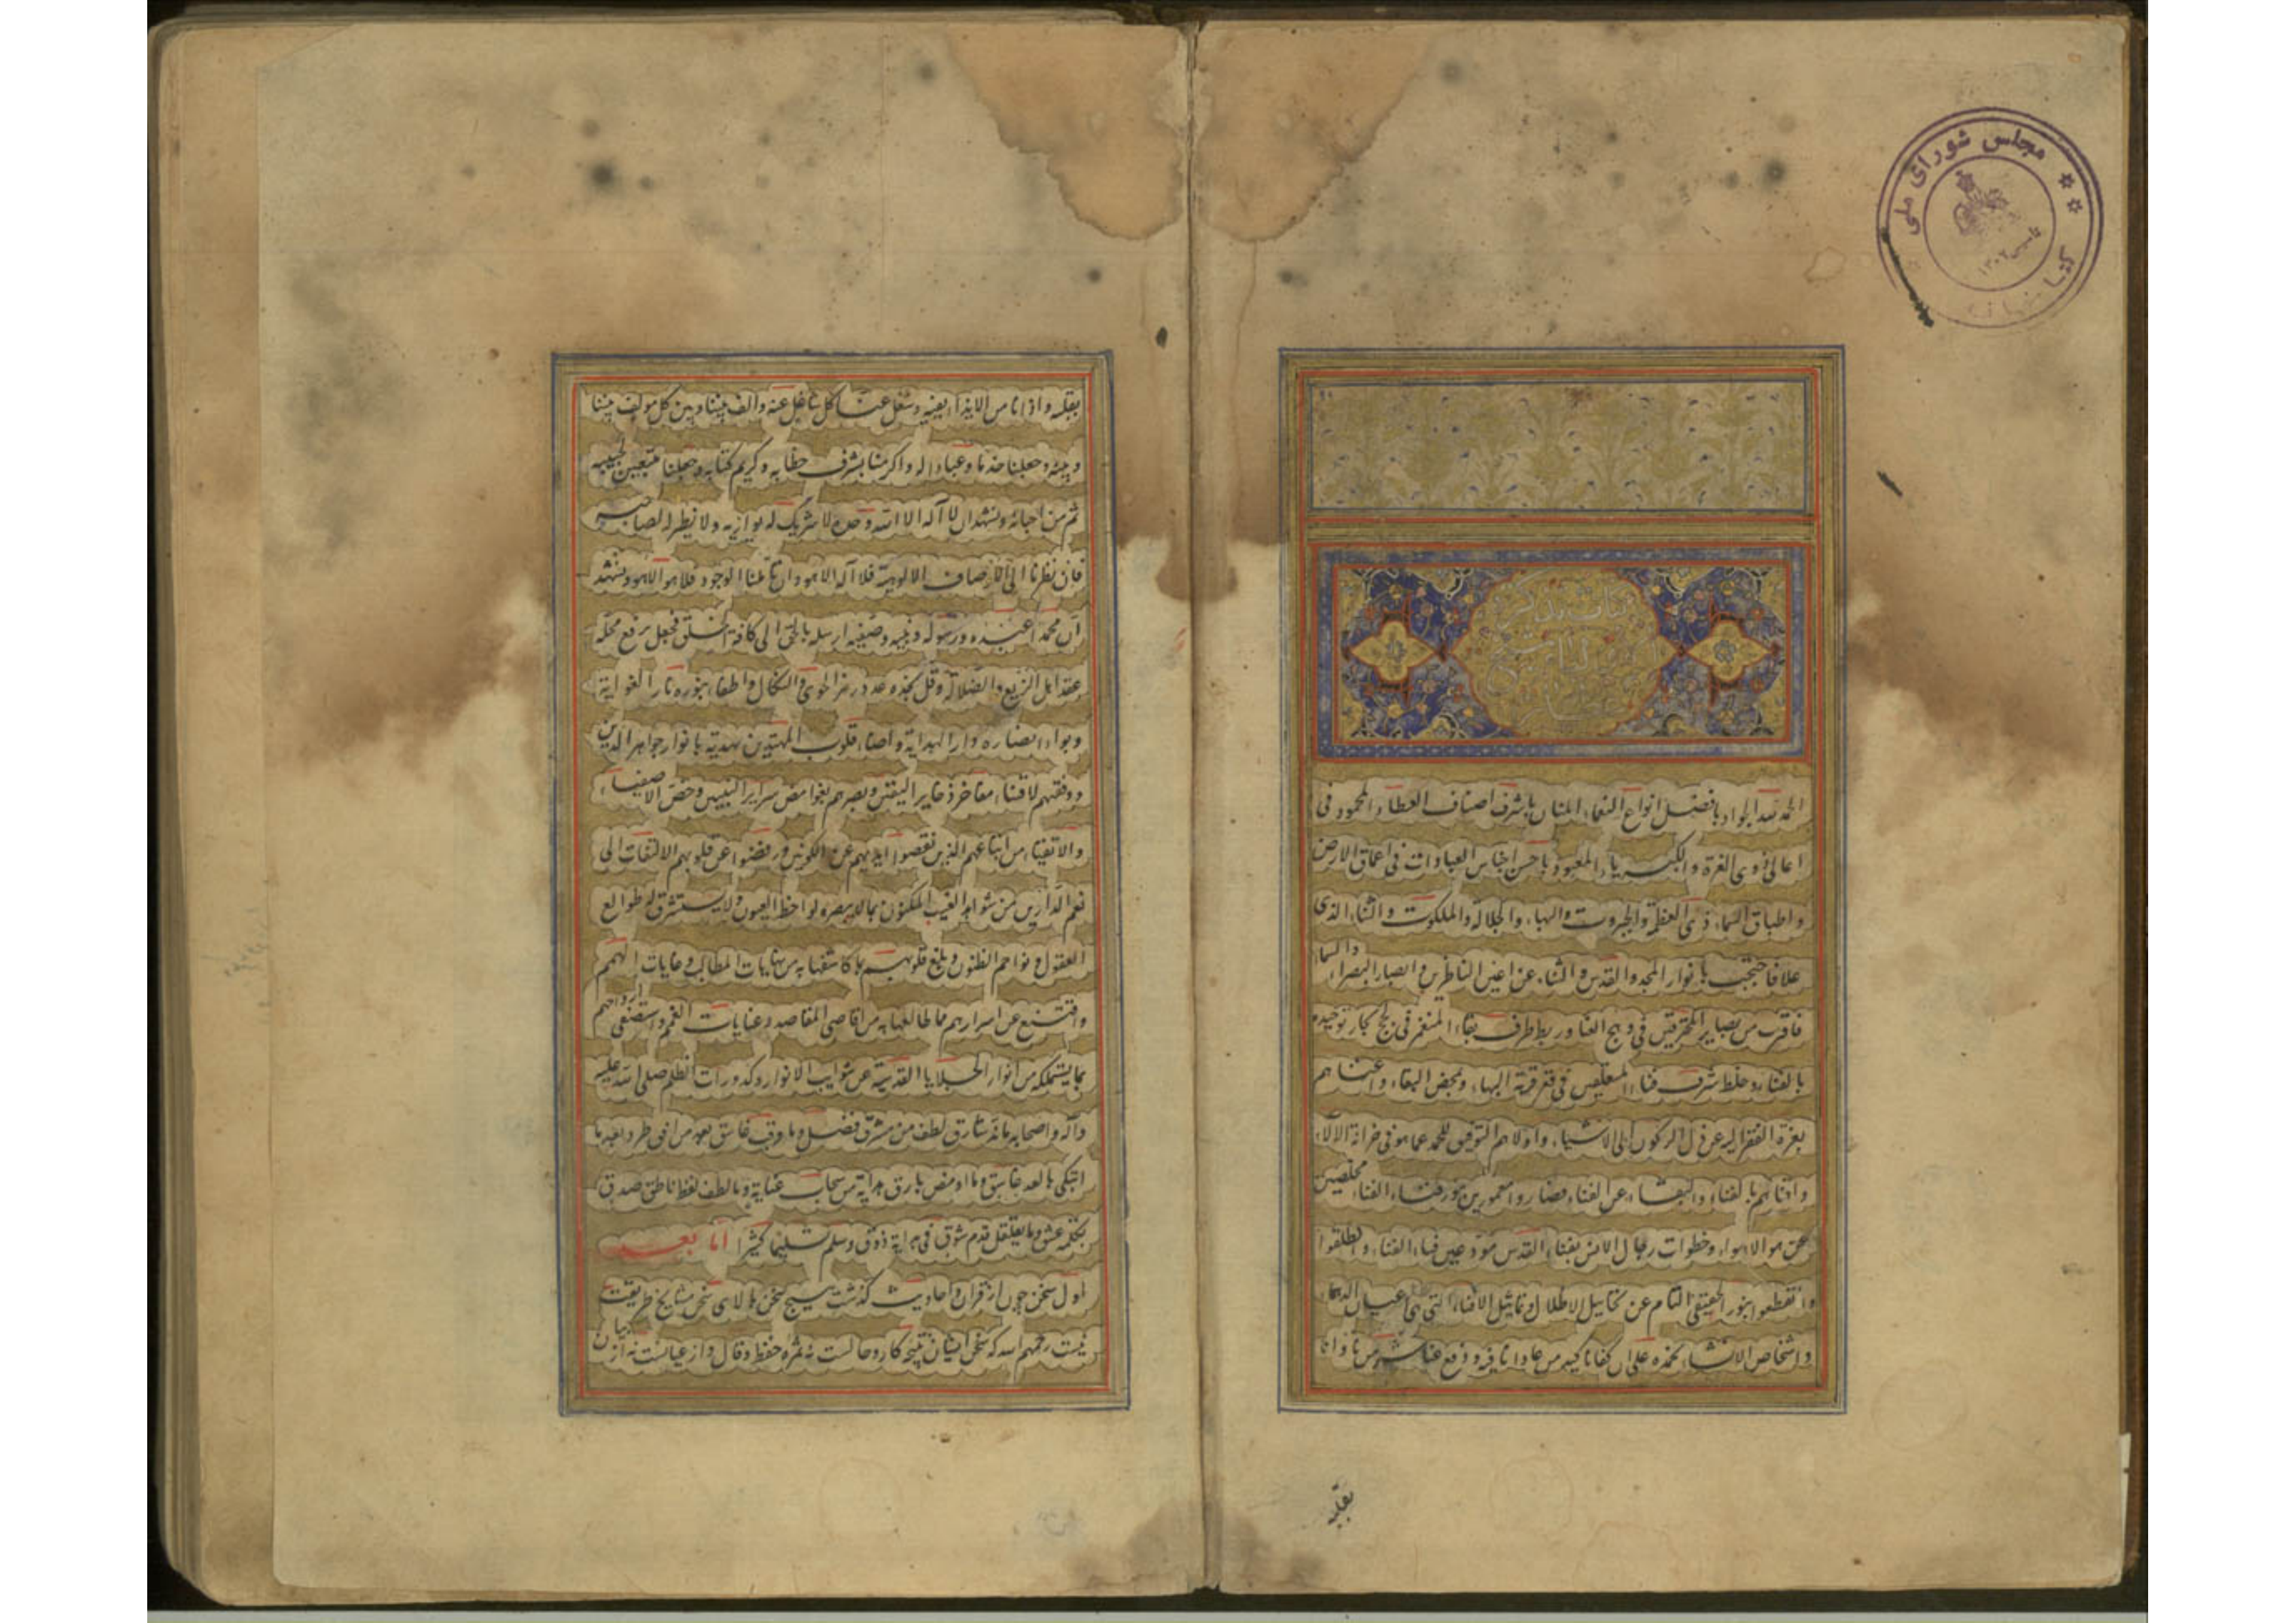 مجلس شورای ملی
کتابخانه
تاسیس ۱۳۰۲
کتاب تذکرة
الاولیا شیخ
عطار
الحمد لله الجواد بافضل انواع النعماء المنان باشرف اصناف العطاء المحمود فی
اعالی ذوی العزة والکبریاء المعبود باحسن اجناس العبادات فی اعماق الارض
واطباق السماء ذی العظمة والجبروت والبهاء والجلالة والملکوت والثناء الذی
علا فاحتجب بانوار المجد والقدس والثناء عن اعین الناظرین وابصار البصراء والسنا
فاقرب من بصایر المحترقین فی وهج العنا وربط طرف بقاء المنغمر فی لجج بحار توحیده
بالفناء وخلط شرف فناء المنغمس فی قعر قربة البهاء ومحض البقاء واغناهم
بعزة الفقر الیه عن ذل الرکون الی الاشیاء واولاهم التوفیق للحمد عما هو فی خزانة الآلاء
وافناهم بالفناء والبقاء عن الفناء فصاروا مغمورین فناء الفناء مخلصین
عن هو الاهواء وخطوات رجال الانس بفناء القدس مودعین فناء الفناء وانطلقوا
وانقطعوا بنور الحقیقی التام عن تخاییل الاطلال وتماثیل الافناء التی هی اعیان
واشخاص الانشاء نحمده علی ان کفانا کید من عادانا فیه ودفع عنا شر من ناوانا
بقلبه
بقلبه واذانا من الایذاء بفیه وشغل عنا کل شاغل عنه والف بیننا وبین کل مولف بیننا
وبینه وجعلنا خدما وعبادا له واکرمنا بشرف خطابه وکریم کتابه وجعلنا متبعین لحبیبه
ثم من احبائه ونشهد ان لا اله الا الله وحده لا شریک له یوازیه ولا نظیر له لصاحبه
فان نظرنا الی الاوصاف الالوهیة فلا اله الا هو وان تاملنا الوجود فلا هو الا هو ونشهد
ان محمدا عبده ورسوله ونبیه وصفیه ارسله بالحق الی کافة الخلق فجعل برفع محله
عقد اهل الزیغ والضلالة وفل بحده عدد حزب الهوی والنکال واطفاء بنوره نار الغوایة
وبواء انصاره دار الهدایة واضاء قلوب المهتدین بهدیه بانوار جواهر الدین
ووفقهم لاقتناء مفاخر ذخایر الیقین وبصرهم بغوامض سرایر النبیین وخص الاصفیاء
والاتقیاء من اتباعهم الذین نفضوا ایدیهم عن الکونین ورفضوا عن قلوبهم الالتفات الی
نعم الدارین من شواهد الغیب المکنون بما لا یبصره لواحظ العیون ولا یستشرق له طوالع
العقول ونواجم الظنون وبلغ قلوبهم بما کاشفها به من نهایات المطالب وغایات الهمم
واقتنع عن اسرارهم مما طالعها به من اقاصی المقاصد وغنایات الغمم واستصفی ارواحهم
بما یستملکه من انوار الجلایا القدسیة عن شوایب الانوار وکدورات الظلم صلی الله علیه
وآله واصحابه ما ذر شارق لطف من مشرق فضل وما وقب غاسق بعد من افق طرد وبعد ما
ابتکی بالعد غاسق وما اومض بارق هدایة من سحاب عنایة وما لطف لفظ ناطق صدق
بکلمة عشق وما تغلغل قدم شوق فی بدایة ذوق وسلم تسلیما کثیرا اما بعد
اول سخن چون از قران واحادیث گذشت هیچ سخن بالای سخن مشایخ طریقت
نیست رحمهم الله که سخن ایشان نتیجه کار وحالست نه ثمره حفظ وقال واز عیانست نه از بیان